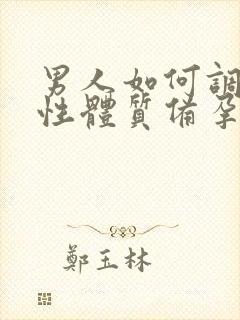 男人如何調
性體質備孕
鄭玉林